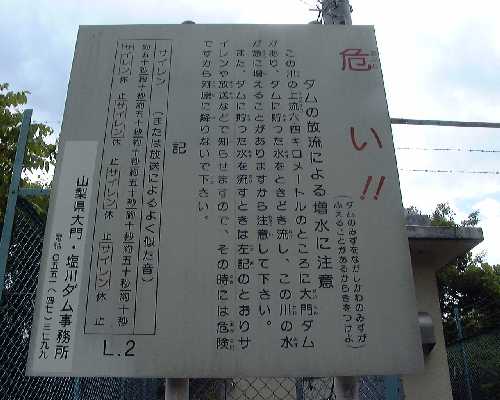 危い!!
ダムの放流による増水に注意
(ダムのみずをながしかわのみずが
ふえることがあるからきをつけよ)
この川の上流六四キロメートルのところに大門ダム
があり、ダムに貯った水をときどき流し、この川の水
が急に増えることがありますから注意して下さい。
また、ダムに貯った水を流すときは左記のとおりサ
イレンや放送などで知らせますので、その時には危険
ですから河原に降りないで下さい。
記
サイレン (または放送によるよく似た音)
約五十秒約十秒約五十秒約十秒約五十秒約十秒約五十秒約十秒
サイレン休止サイレン休止サイレン休止サイレン休止
山梨県大門・塩川ダム事務所
L.2